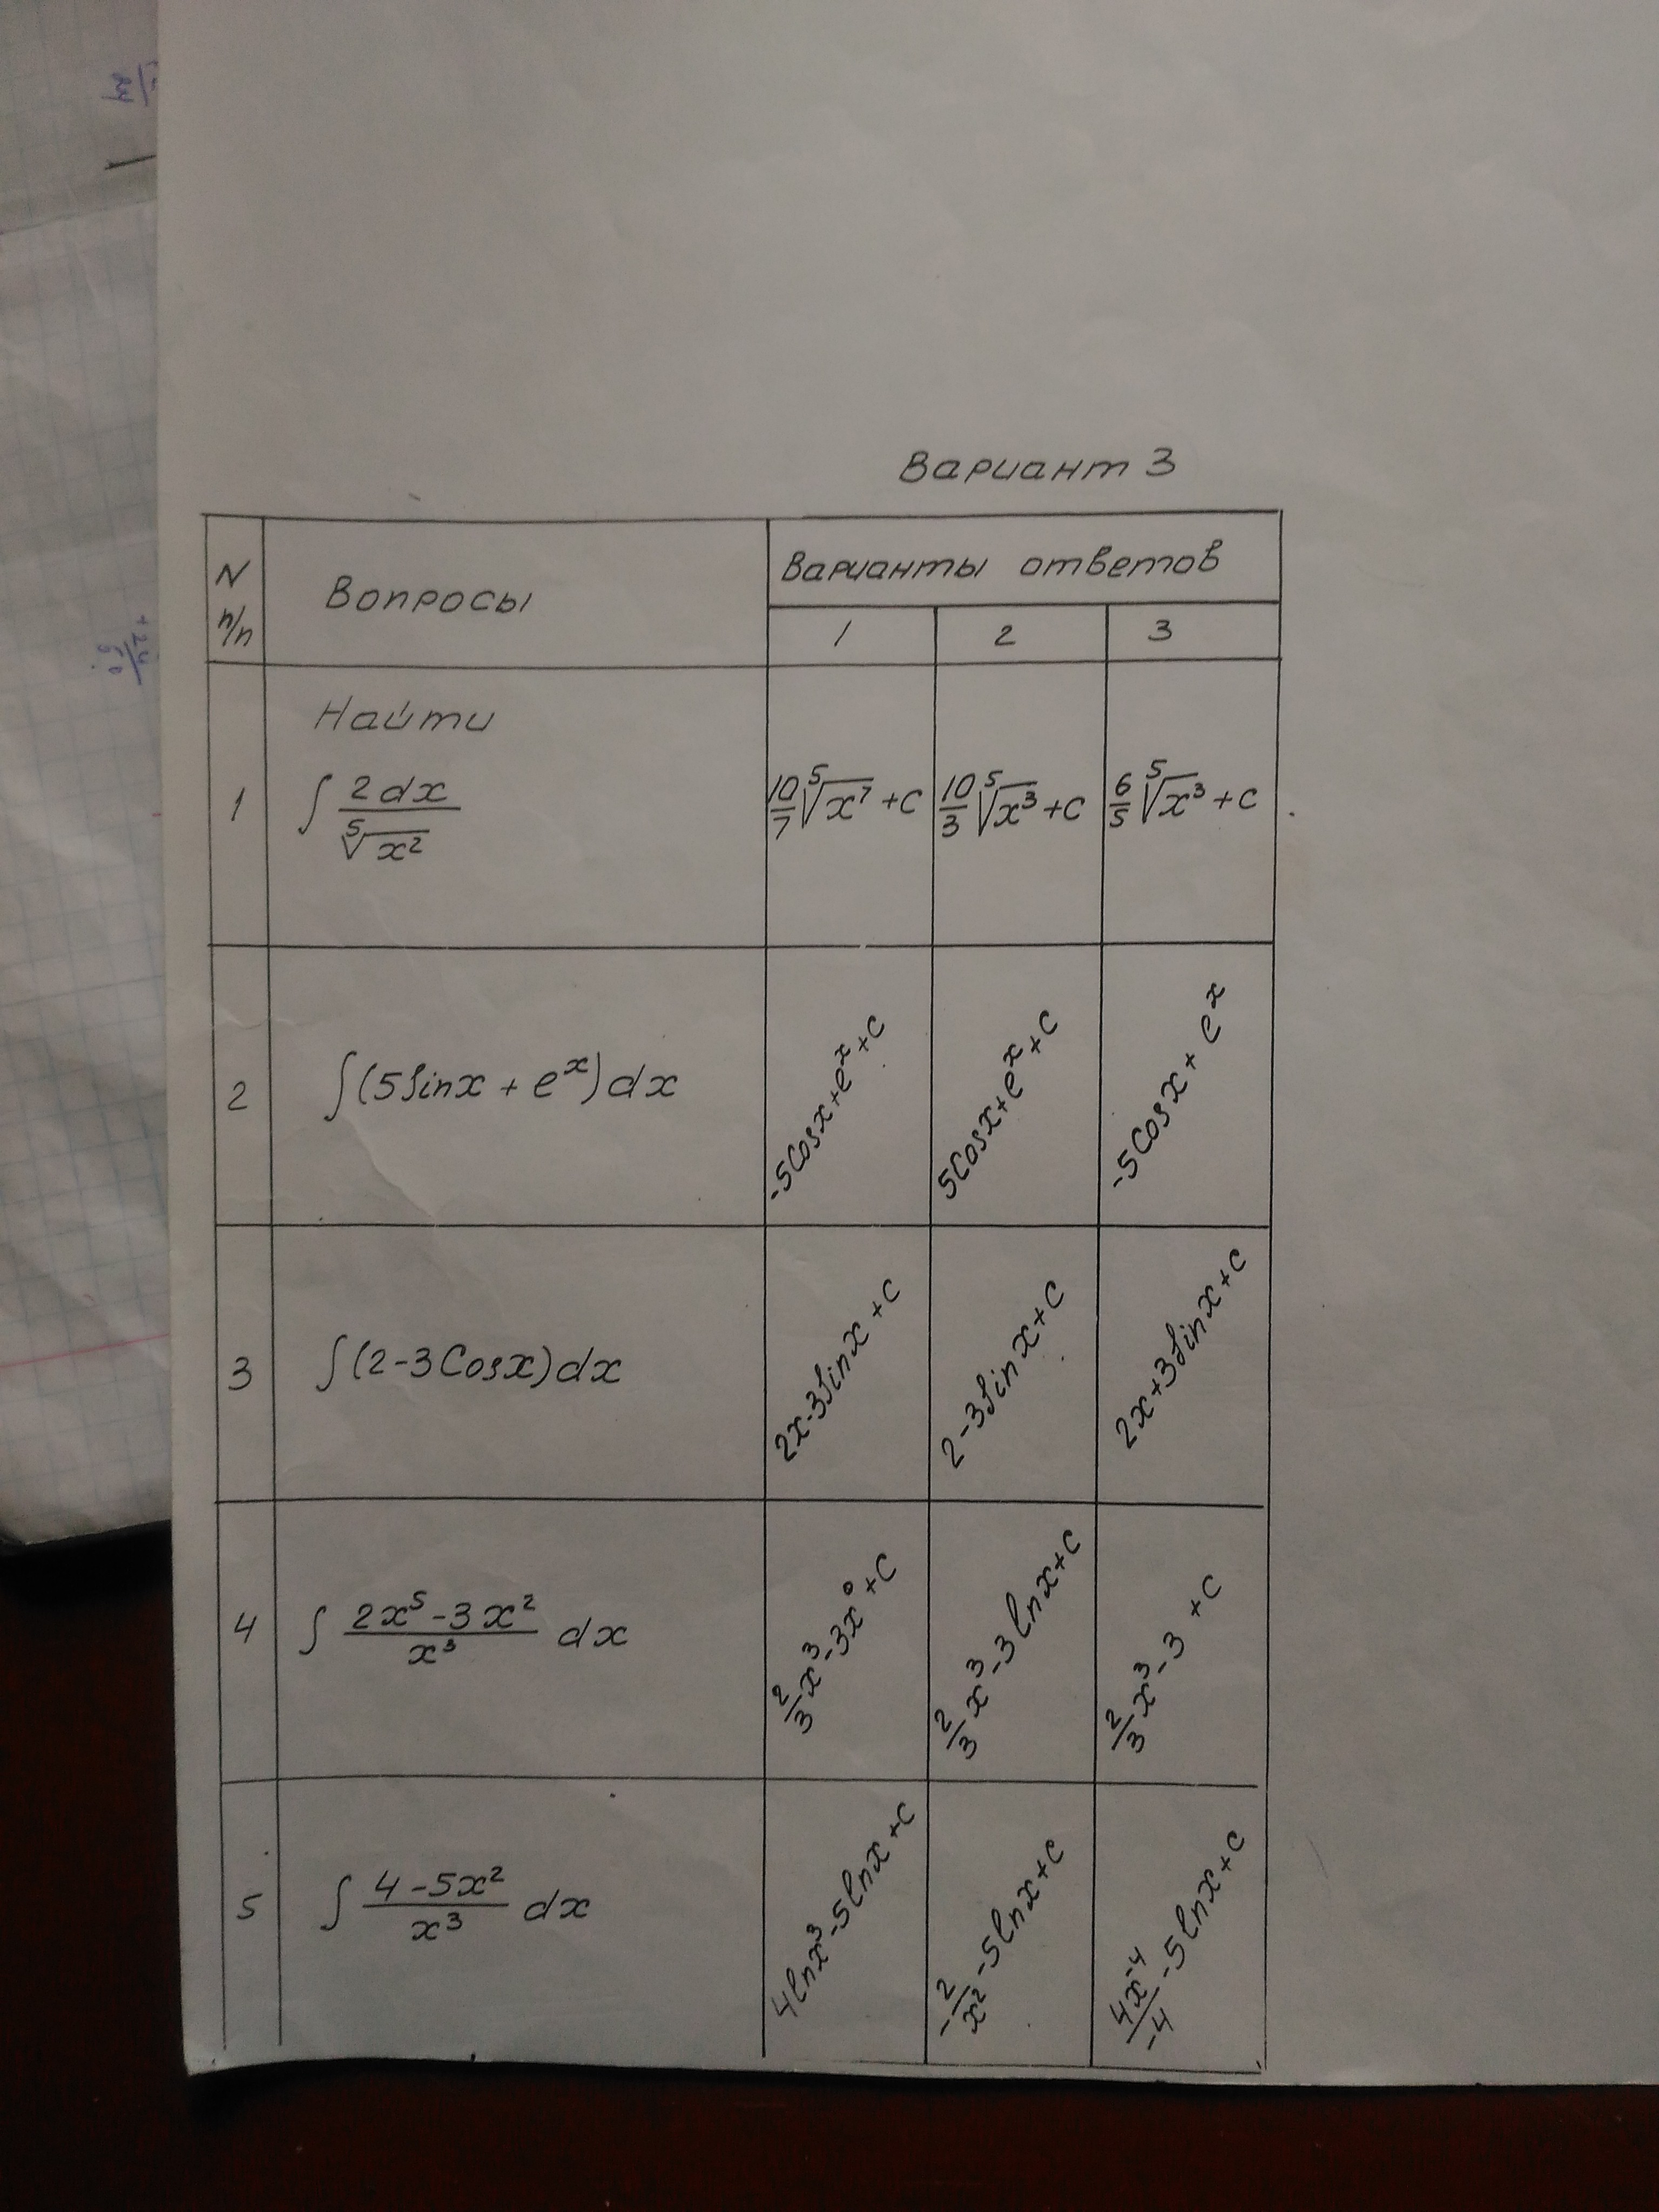 Вариант 3
N п/п
Вопросы
Варианты ответов
1 2 3
Найти
1 ∫ 2dx/⁵√x² 10/7 ⁵√x⁷ + C 10/3 ⁵√x³ + C 6/5 ⁵√x³ + C
2 ∫(5sinx + eˣ)dx -5Cosx+eˣ+C 5Cosx+eˣ+C -5Cosx+eˣ
3 ∫(2-3Cosx)dx 2x-3sinx+C 2-3sinx+C 2x+3sinx+C
4 ∫ (2x⁵-3x²)/x³ dx 2/3 x³-3x⁰+C 2/3 x³-3lnx+C 2/3 x³-3+C
5 ∫ (4-5x²)/x³ dx 4lnx³-5lnx+C -2/x²-5lnx+C 4x⁻⁴/-4 -5lnx+C